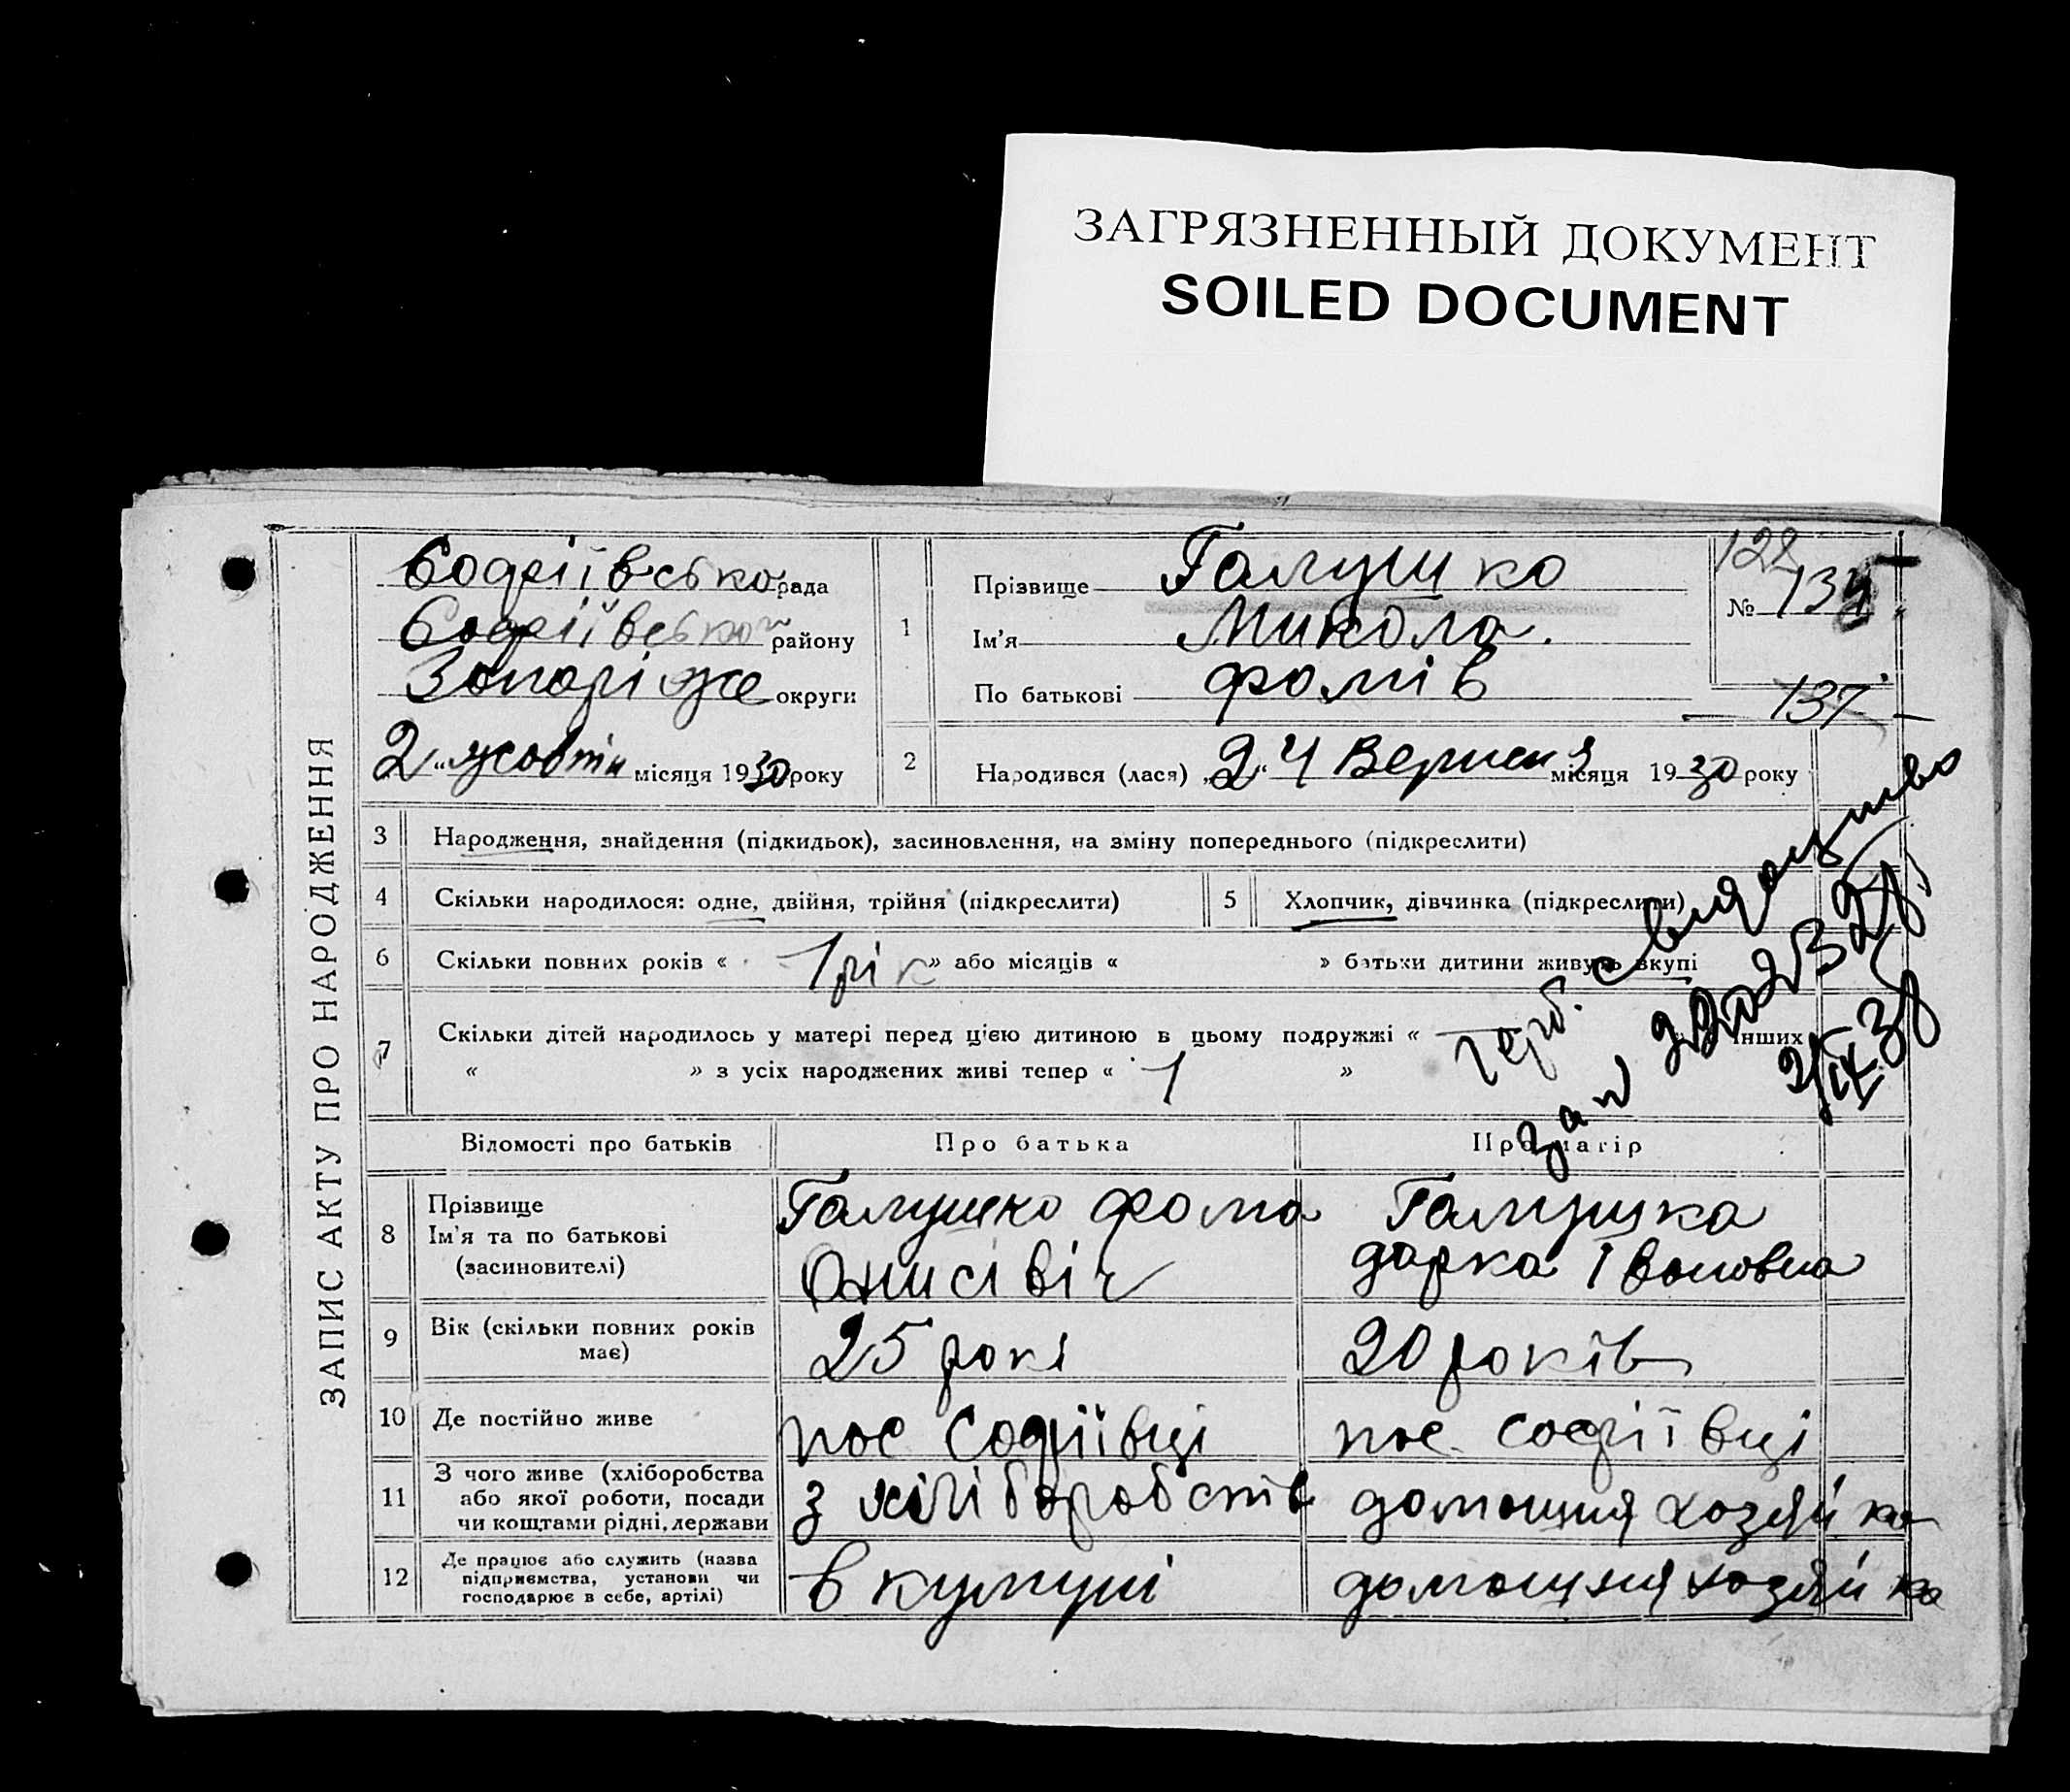 ЗАГРЯЗНЕННЫЙ ДОКУМЕНТ
SOILED DOCUMENT
ЗАПИС АКТУ ПРО НАРОДЖЕННЯ
Софіївсько рада
Софіївської району
Запоріже округи
2 " жовтн місяця 1930 року
1
Прізвище Галушко
Ім'я Микола.
По батькові фомів
122
№ 134
137
2
Народився (лася) „24 Вересня місяця 1930 року
3 Народження, знайдення (підкидьок), засиновлення, на зміну попереднього (підкреслити)
4 Скільки народилося: одне, двійня, трійня (підкреслити)
5 Хлопчик, дівчинка (підкреслити)
6 Скільки повних років « 1 рік » або місяців « » батьки дитини живуть вкупі
7 Скільки дітей народилось у матері перед цією дитиною в цьому подружжі « інших
« » з усіх народжених живі тепер « 1 »
герб. свидоцтво
Відомості про батьків
Про батька
Про матір
8 Прізвище
Ім'я та по батькові
(засиновителі)
Галушко фома
Онисівіч
Галушка
дарка Івановна
9 Вік (скільки повних років
має)
25 рокі
20 років
10 Де постійно живе
пос Софіївці
пос. Софіївці
11 З чого живе (хліборобства
або якої роботи, посади
чи коштами рідні, держави
з хліборобств
домошня хозяйка
12 Де працює або служить (назва
підприємства, установи чи
господарює в себе, артілі)
в кумуні
домошня хозяйка